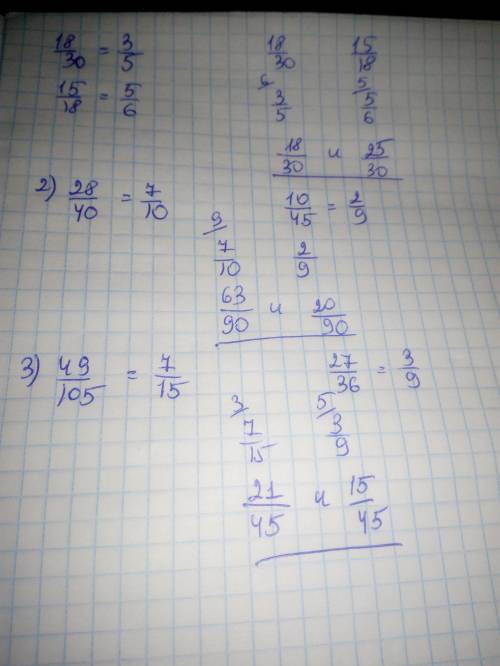 18/30 = 3/5 18/30 15/18
15/18 = 5/6 6 3/5 5 5/6
18/30 и 25/30
2) 28/40 = 7/10 10/45 = 2/9
9 7/10 2/9
63/90 и 20/90
3) 49/105 = 7/15 27/36 = 3/9
3 7/15 5 3/9
21/45 и 15/45